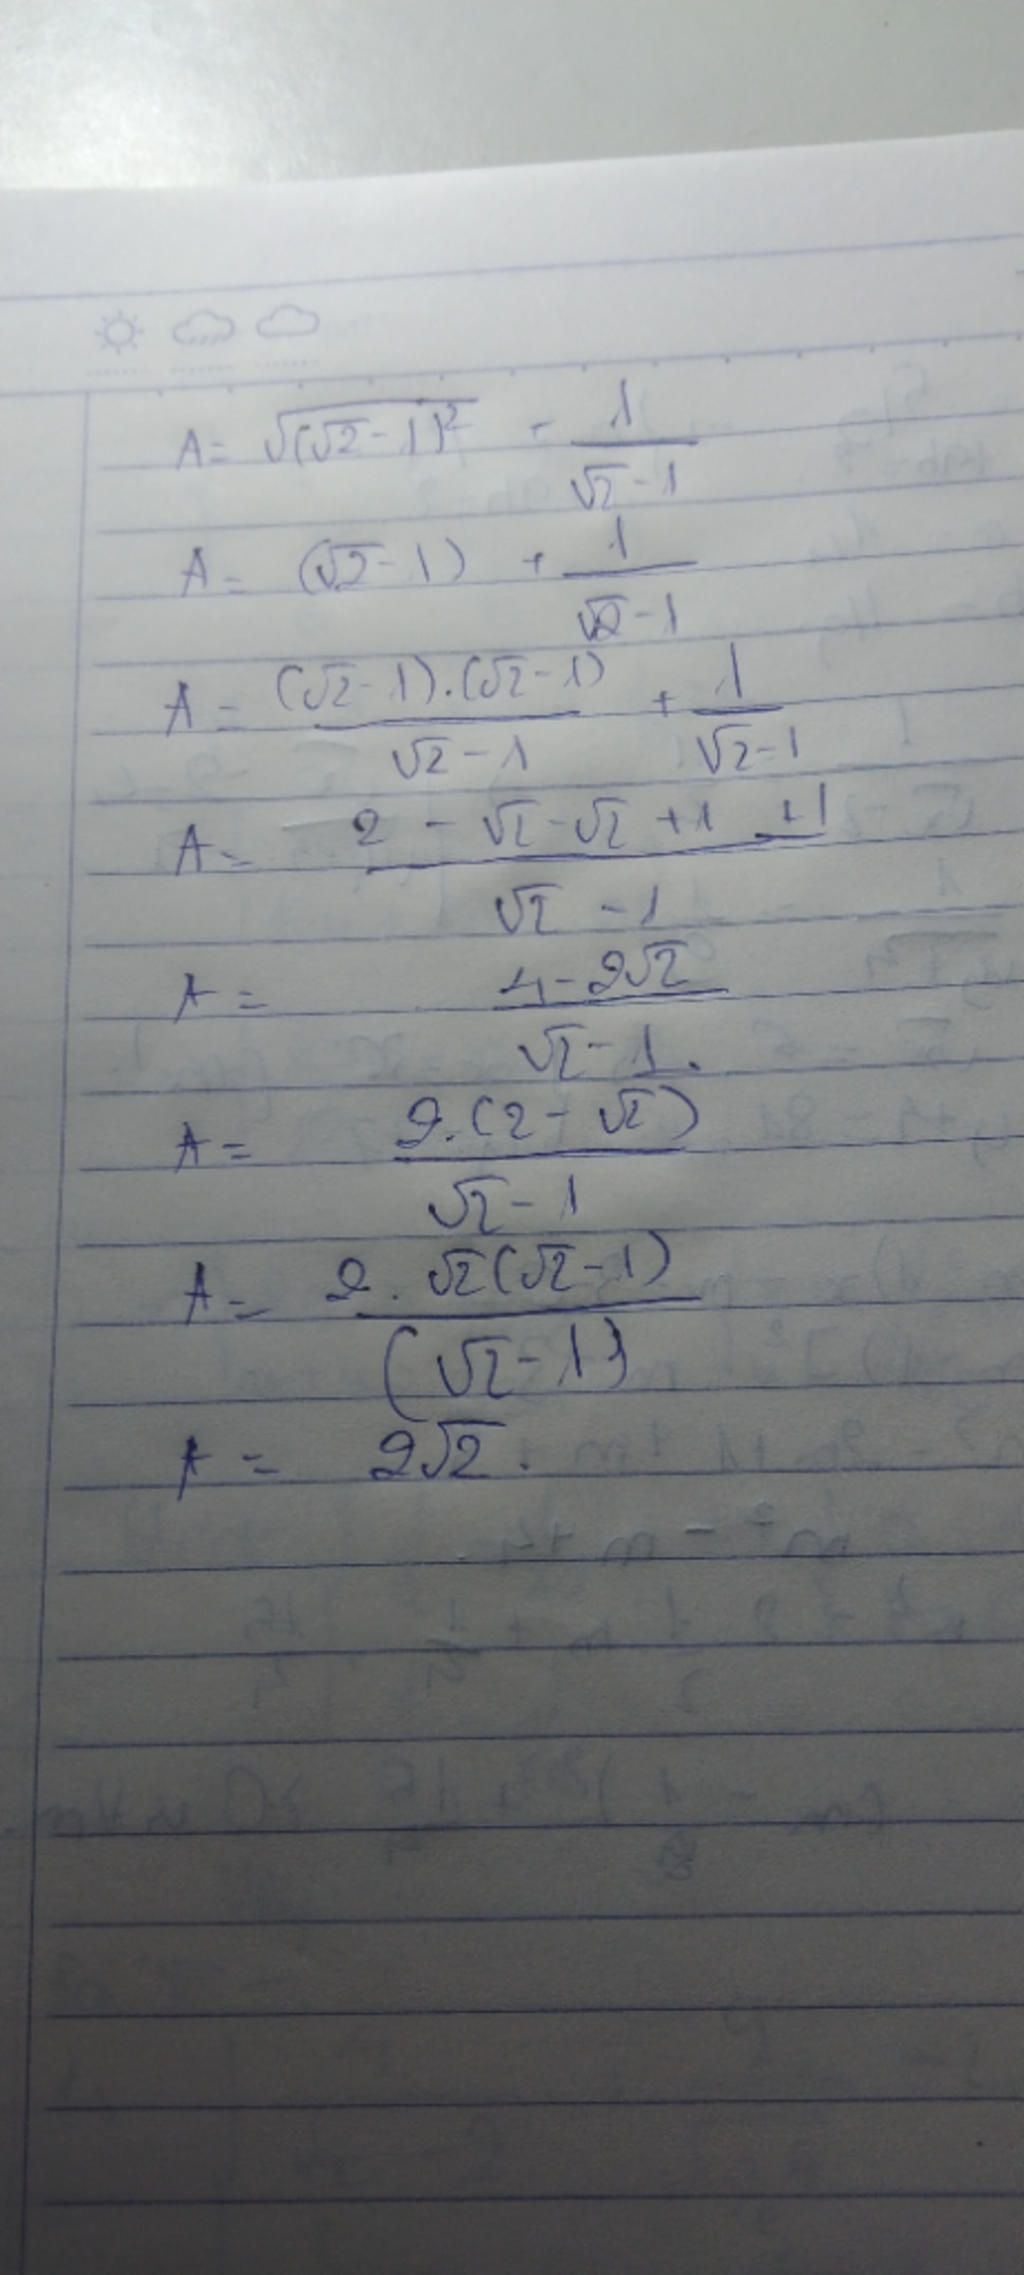 A = √(√2 - 1)² + 1/(√2 - 1)
A = (√2 - 1) + 1/(√2 - 1)
A = (√2 - 1).(√2 - 1)/(√2 - 1) + 1/(√2 - 1)
A = (2 - √2 - √2 + 1 + 1)/(√2 - 1)
A = (4 - 2√2)/(√2 - 1).
A = 2.(2 - √2)/(√2 - 1)
A = 2.√2(√2 - 1)/(√2 - 1)
A = 2√2.